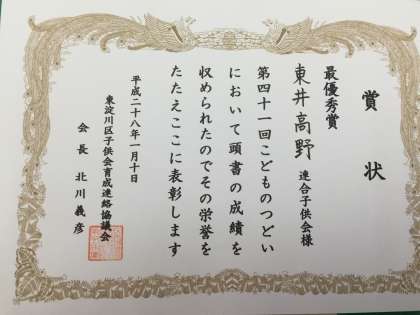 賞状
最優秀賞
東井高野 連合子供会様
第四十一回こどものつどい
において頭書の成績を
収められたのでその栄誉を
たたえここに表彰します
平成二十八年一月十日
東淀川区子供会育成連絡協議会
会長 北川義彦